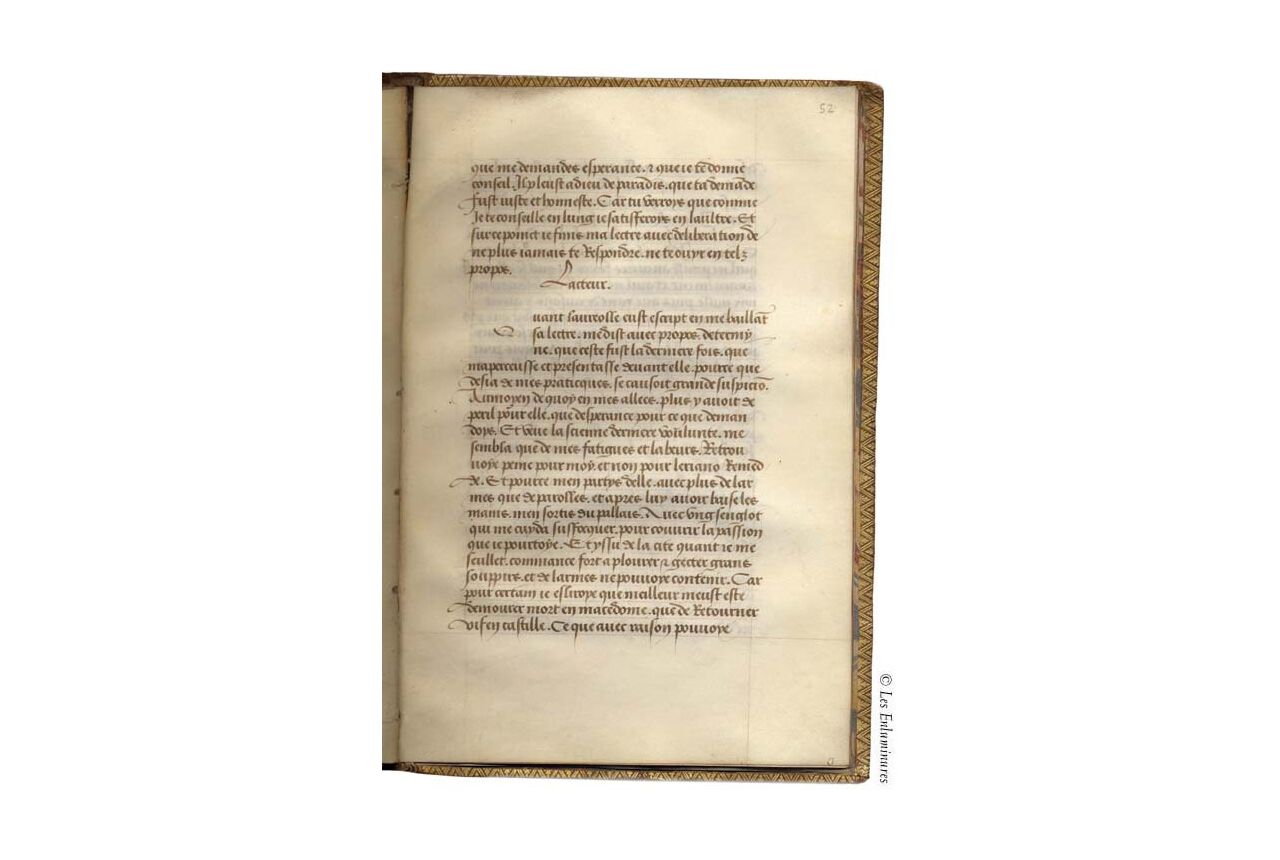 52
que me demandes esperance. & que ie tē donne
conseil. Il pleust a dieu de paradis. que ta demāde
fust iuste et honneste. Car tu verroys que comme
Je te conseille en lung ie satisfferoys en laultre. Et
sur ce poinct ie finis ma lectre avec deliberation de
ne plus iamais te Respondre. ne te ouyr en telz
propos.
Lacteur.
Quant laureolle eust escript en me baillāt
sa lectre. me dist avec propos determy
ne. que ceste fust la derniere fois. que
maperceusse et presentasse devant elle. pource que
desia de mes practicques. se causoit grande suspiciō.
Au moyen de quoy en mes allees. plus y avoit de
peril pour elle. que desperance pour ce que deman
doys. Et veue la scienne derniere voulunte. me
sembla que de mes fatigues et labeurs. Retrou
voye peine pour moy. et non pour leriano Remed
de. Et pource men partys delle. avec plus de lar
mes que de parolles. et apres luy avoir baise les
mains. men sortis du pallais. Avec ung senglot
qui me cuyda suffocquer. pour couvrir la passion
que ie pourtoye. Et yssu de la cite quant ie me
seullet. commance fort a plourer & gecter grans
souppirs. et de larmes ne pouvoye contenir. Car
pour certain ie esliroye que meilleur meust este
demourer mort en macedoine. que de Retourner
vif en castille. Ce que avec raison pouvoye
© Les Enluminures